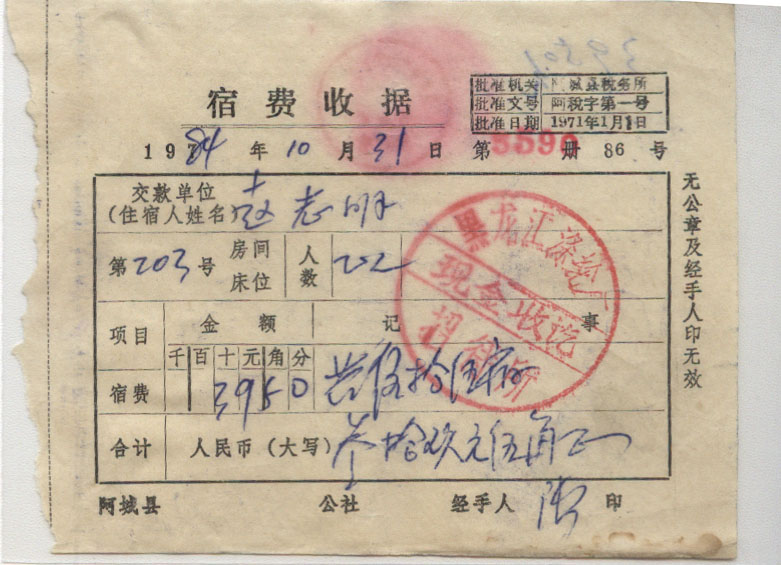 3950
批准机关 阿城县税务所
宿费收据
批准文号 阿税字第一号
批准日期 1971年1月1日
1984年10月31日 第5590册86号
交款单位
(住宿人姓名) 赵志明
第203号 房间床位 人数
项目 金额 记事
千百十元角分
宿费 3950 共伍拾伍
合计 人民币(大写) 叁拾玖元伍角正
阿城县 公社 经手人 印
无公章及经手人印无效
黑龙江涤纶厂
现金收讫
招待所